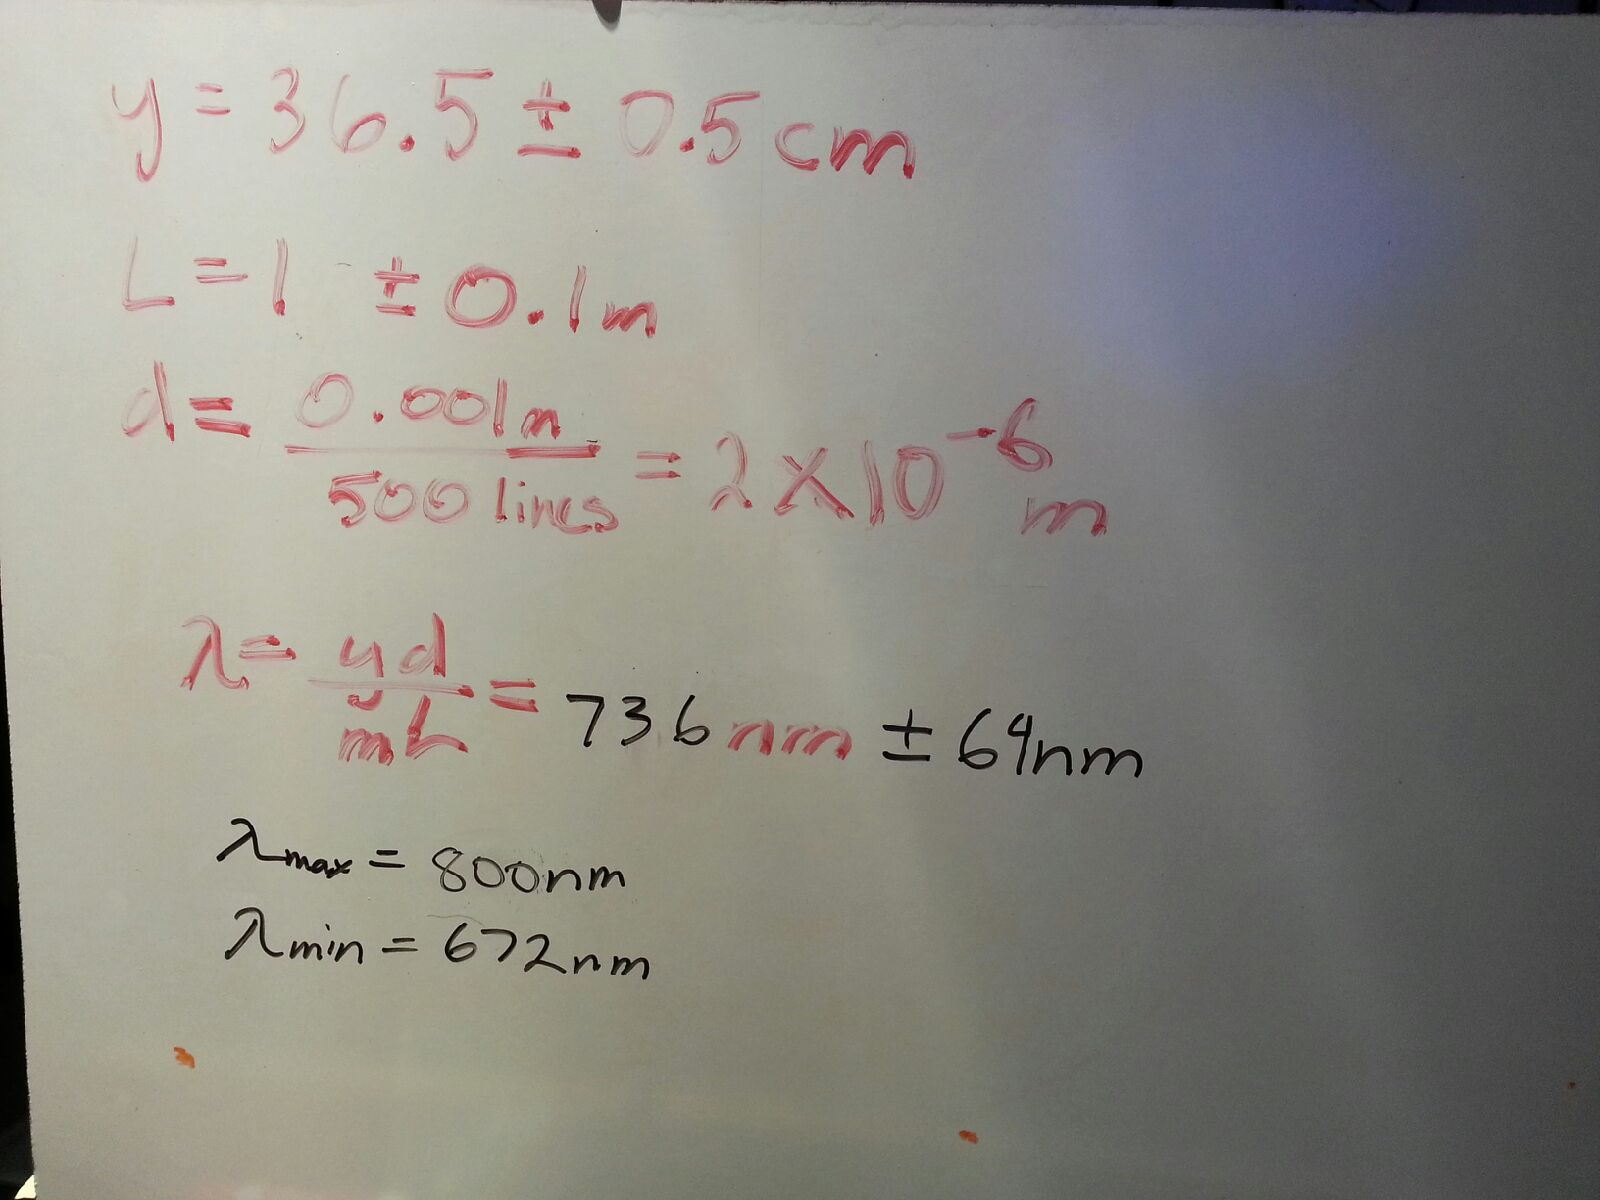 y = 36.5 ± 0.5 cm
L = 1 ± 0.1 m
d = 0.001m / 500 lines = 2 x 10^-6 m
λ = yd / mL = 736 nm ± 64nm
λmax = 800nm
λmin = 672nm